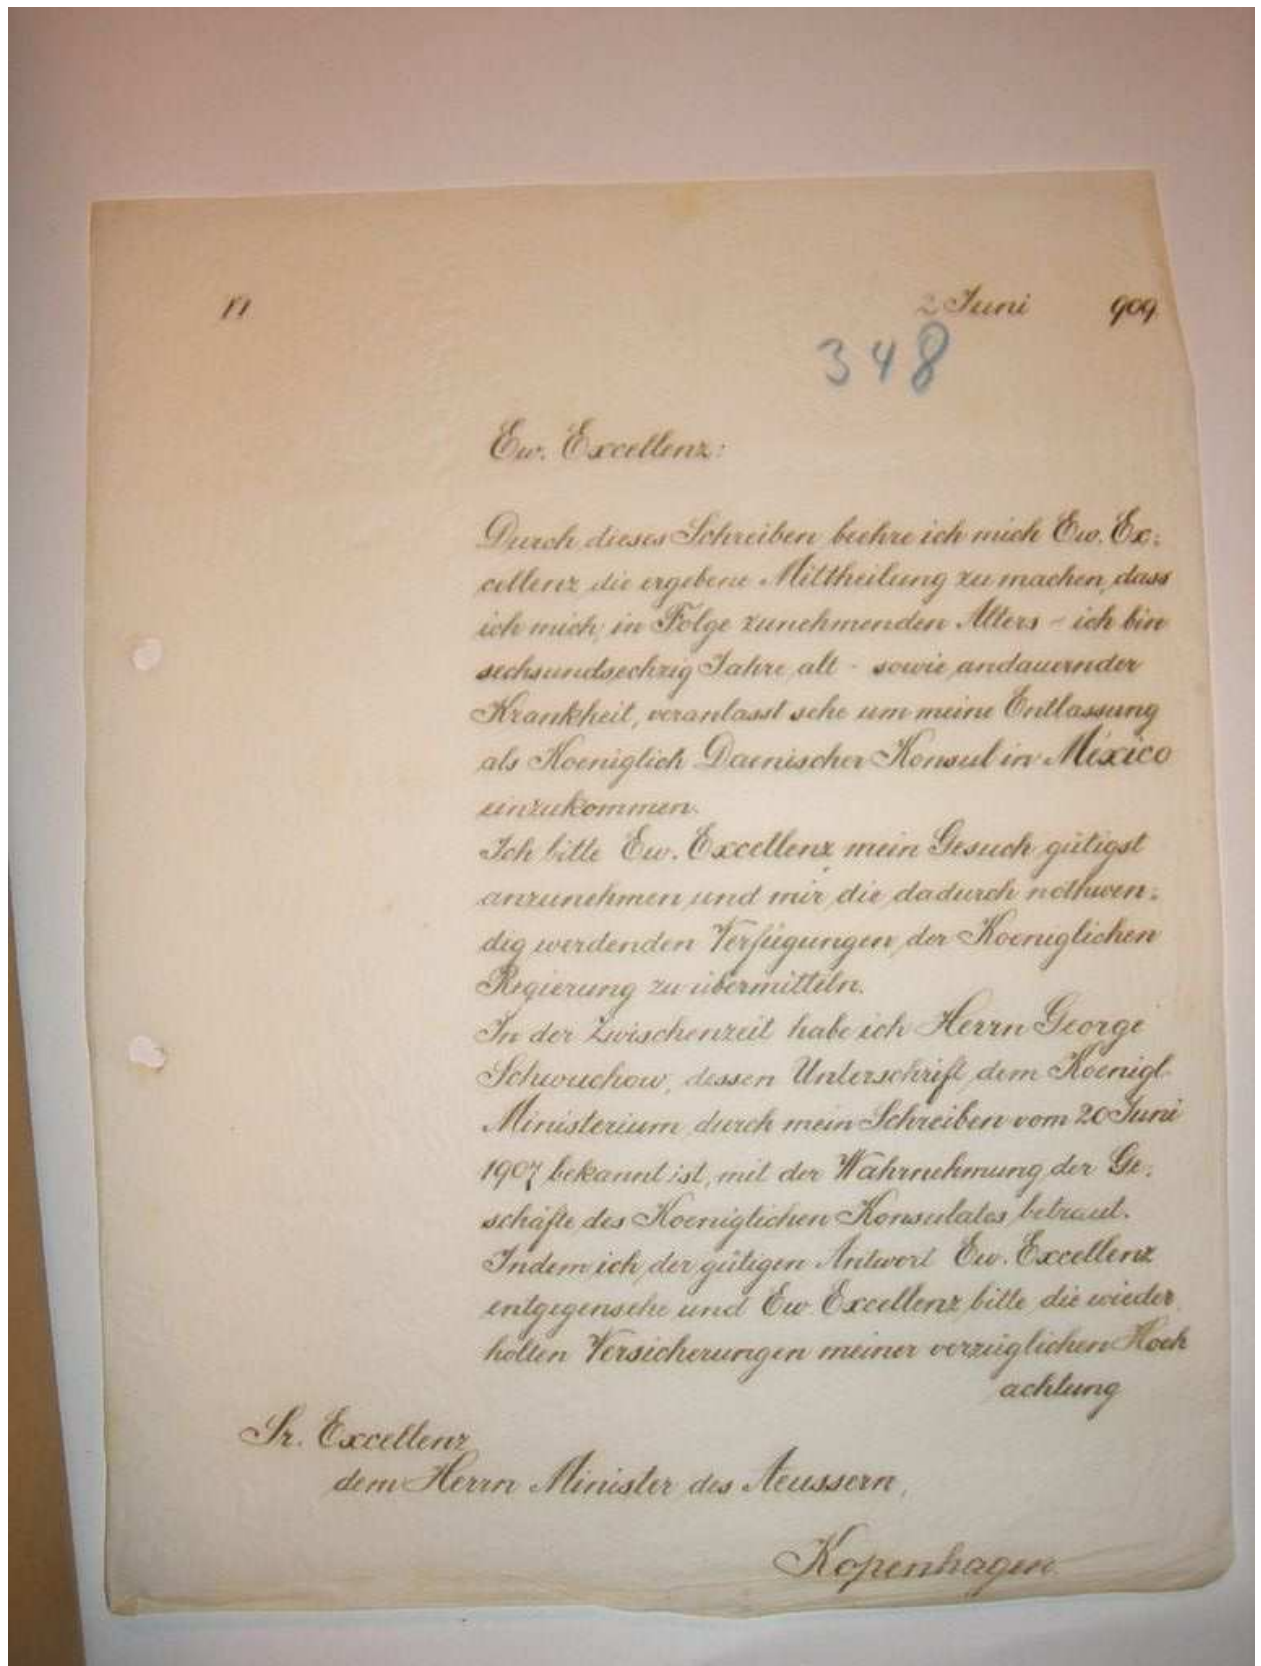 11
2 Juni 909
348
Ew. Excellenz:
Durch dieses Schreiben beehre ich mich Ew. Ex:
cellenz die ergebene Mittheilung zu machen, dass
ich mich, in Folge zunehmenden Alters – ich bin
sechsundsechzig Jahre alt - sowie andauernder
Krankheit, veranlasst sehe um meine Entlassung
als Koeniglich Daenischer Konsul in México
einzukommen.
Ich bitte Ew. Excellenz mein Gesuch gütigst
anzunehmen und mir die dadurch nothwen:
dig werdenden Verfügungen der Koeniglichen
Regierung zu übermitteln.
In der Zwischenzeit habe ich Herrn George
Schwuchow, dessen Unterschrift dem Koenigl.
Ministerium durch mein Schreiben vom 20 Juni
1907 bekannt ist, mit der Wahrnehmung der Ge:
schäfte des Koeniglichen Konsulates betraut.
Indem ich der gütigen Antwort Ew. Excellenz
entgegensehe und Ew Excellenz bitte die wieder
holten Versicherungen meiner vorzüglichen Hoch
achtung
Sr. Excellenz
dem Herrn Minister des Aeussern,
Kopenhagen.